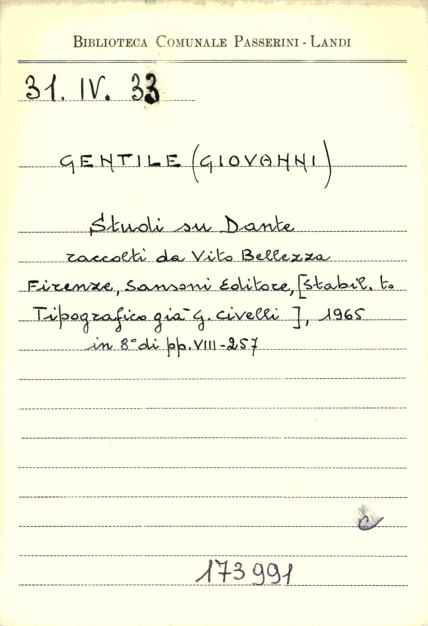 BIBLIOTECA COMUNALE PASSERINI - LANDI
31. IV. 33
GENTILE (GIOVANNI)
Studi su Dante
raccolti da Vito Bellezza
Firenze, Sansoni Editore, [Stabil. to
Tipografico già G. Civelli ], 1965
in 8° di pp. VIII-257
173991